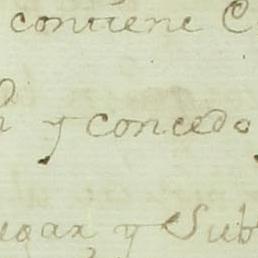 contiene C
y concedo
y Sub